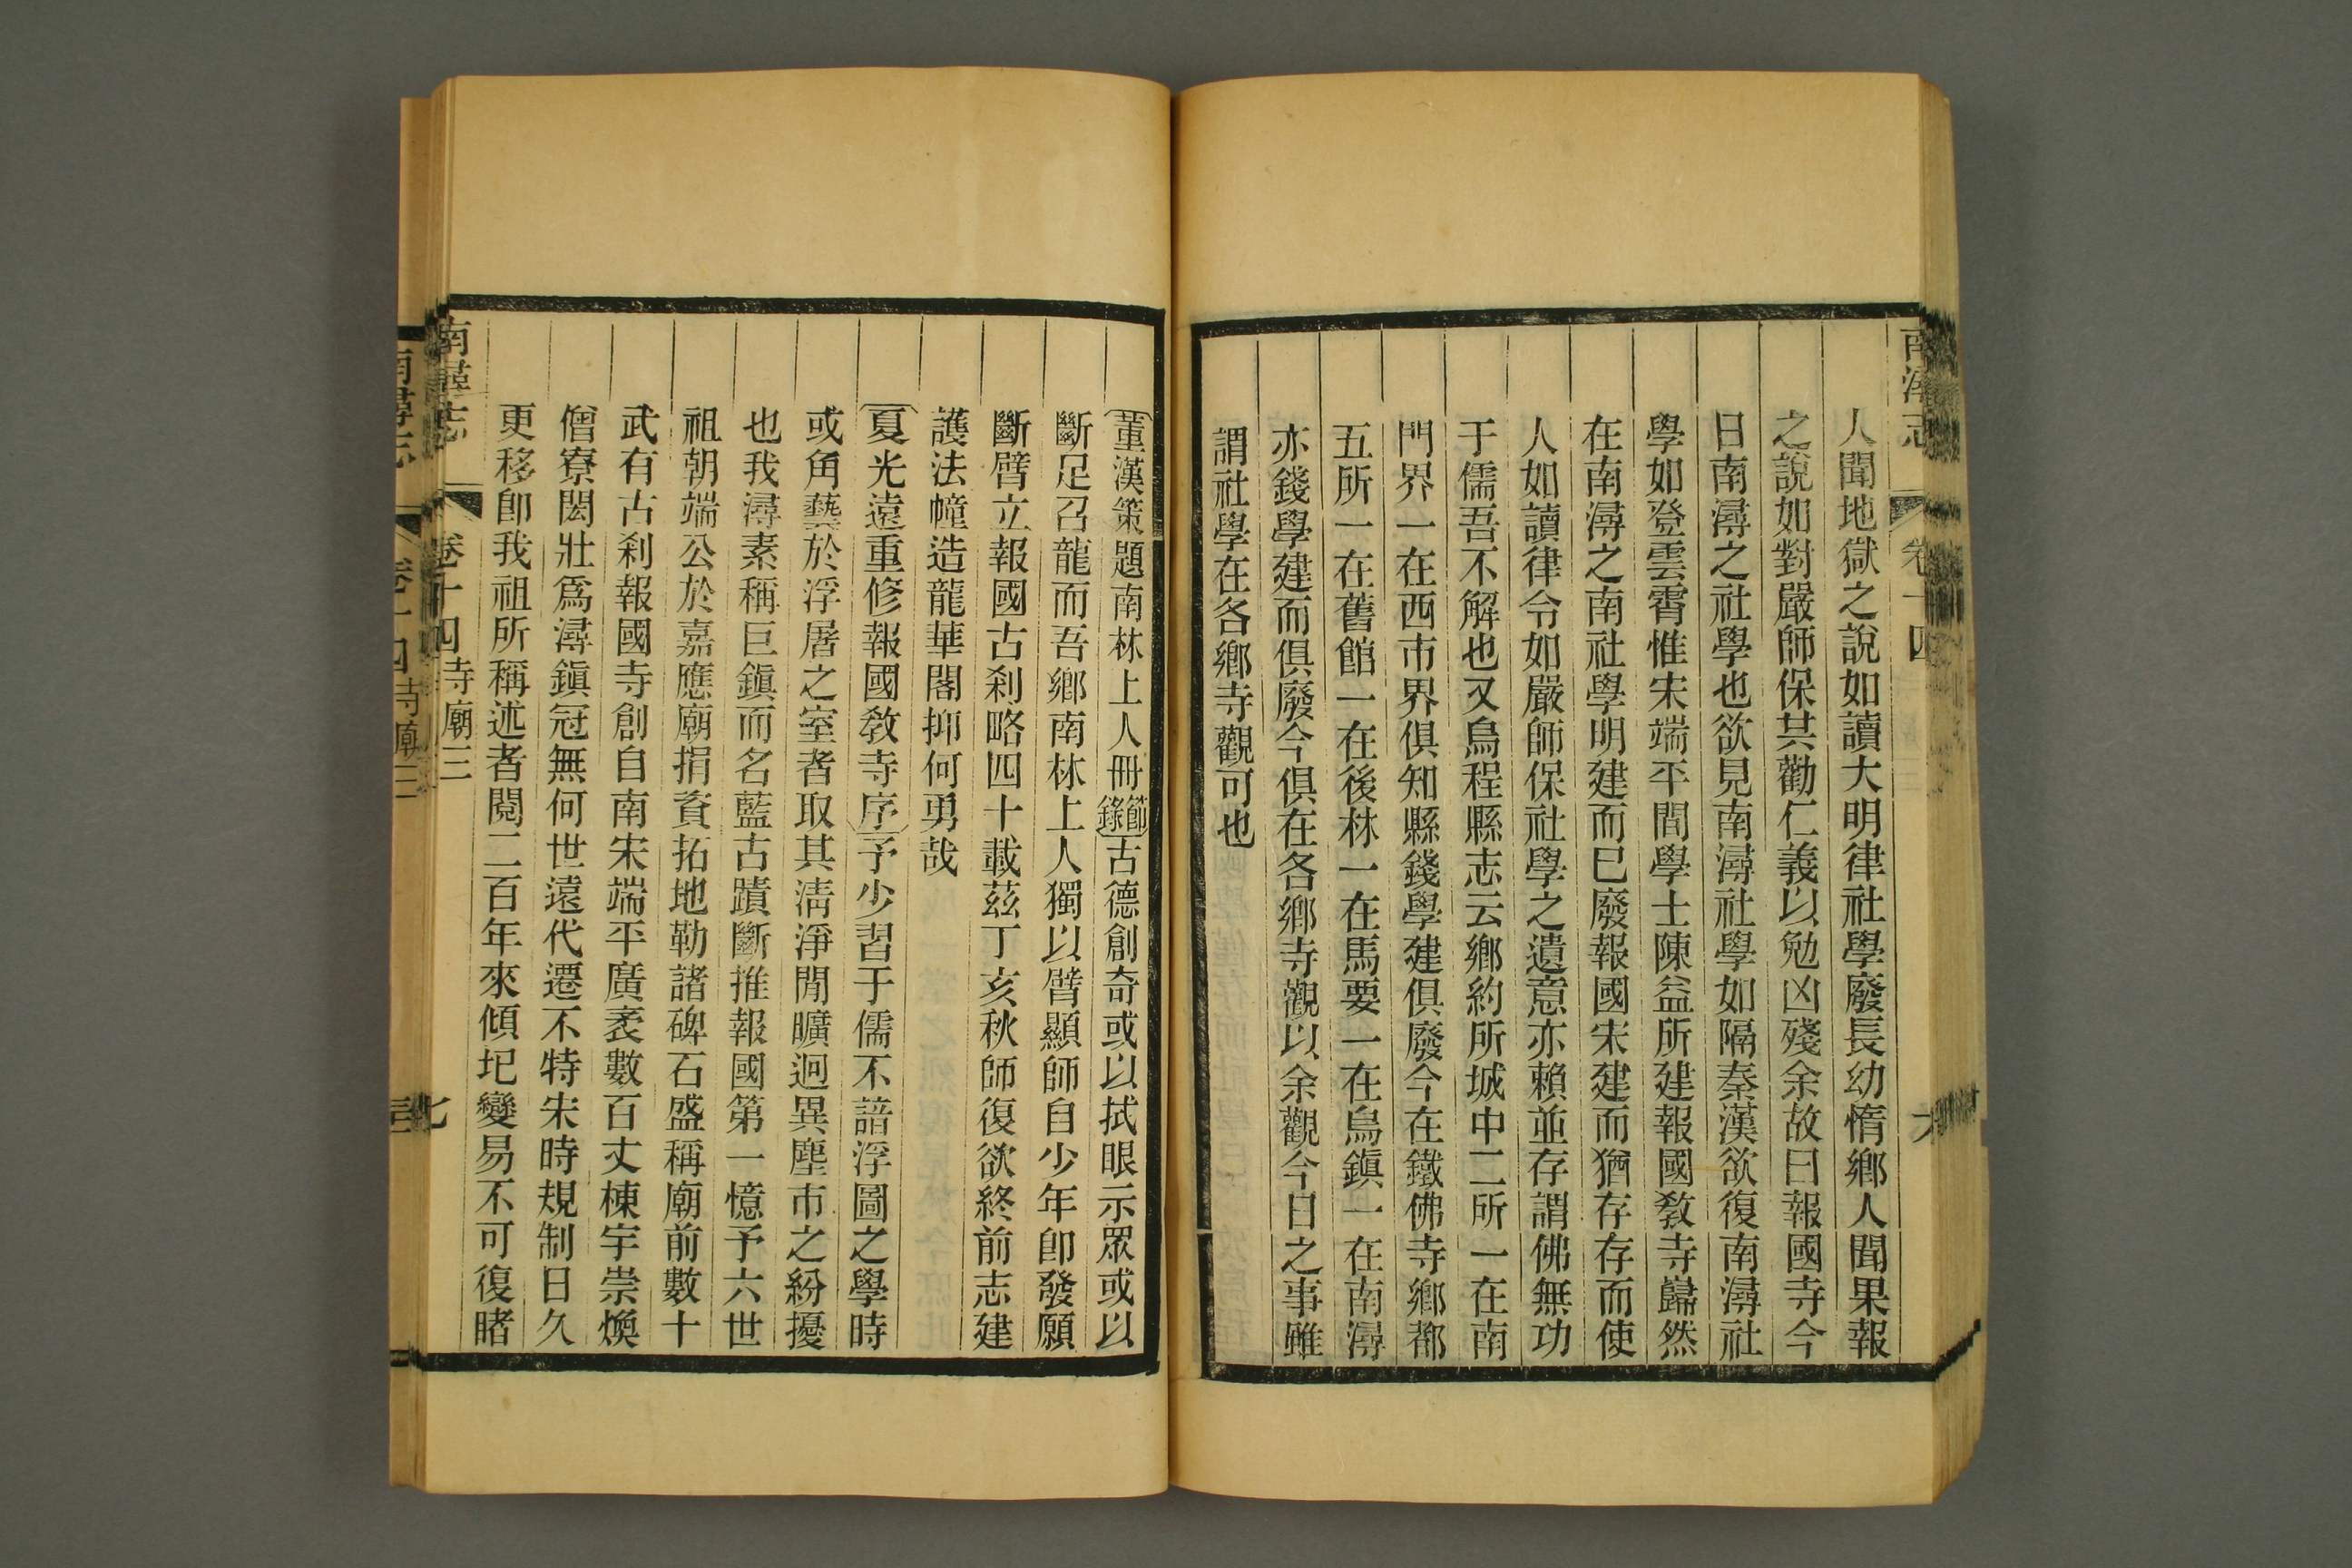 南潯志 卷十四 六
人聞地獄之說如讀大明律社學廢長幼惰鄉人聞果報
之說如對嚴師保其勸仁義以勉凶殘余故曰報國寺今
日南潯之社學也欲見南潯社學如隔秦漢欲復南潯社
學如登雲霄惟宋端平間學士陳益所建報國教寺巋然
在南潯之南社學明建而已廢報國宋建而猶存存而使
人如讀律令如嚴師保社學之遺意亦賴並存謂佛無功
于儒吾不解也又烏程縣志云鄉約所城中二所一在南
門界一在西市界俱知縣錢學建俱廢今在鐵佛寺鄉都
五所一在舊館一在後林一在馬要一在烏鎭一在南潯
亦錢學建而俱廢今俱在各鄉寺觀以余觀今日之事雖
謂社學在各鄉寺觀可也
董漢策題南林上人冊節錄古德創奇或以拭眼示眾或以
斷足召龍而吾鄉南林上人獨以臂顯師自少年卽發願
斷臂立報國古刹略四十載茲丁亥秋師復欲終前志建
護法幢造龍華閣抑何勇哉
夏光遠重修報國教寺序予少習于儒不諳浮圖之學時
或角藝於浮屠之室者取其淸淨閒曠迥異塵市之紛擾
也我潯素稱巨鎭而名藍古蹟斷推報國第一憶予六世
祖朝端公於嘉應廟捐資拓地勒諸碑石盛稱廟前數十
武有古刹報國寺創自南宋端平廣袤數百丈棟宇崇煥
僧寮閎壯爲潯鎭冠無何世遠代遷不特宋時規制日久
更移卽我祖所稱述者閱二百年來傾圮變易不可復睹
南潯志 卷十四 寺廟三 七
南潯志 卷十四 寺廟三